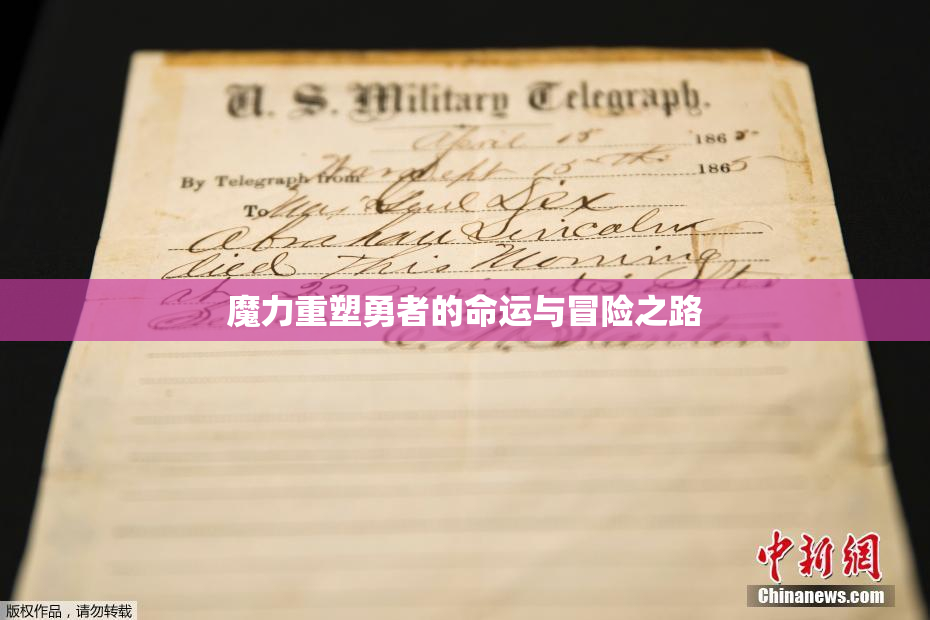 U. S. Military Telegraph.
April 15 1865
By Telegraph from War Dept 15th 1865
To Maj Genl Dix
Abraham Lincoln
died This Morning
at 22 minutes after
魔力重塑勇者的命运与冒险之路
E. M. Stanton
中新网
Chinanews.com
版权作品，请勿转载